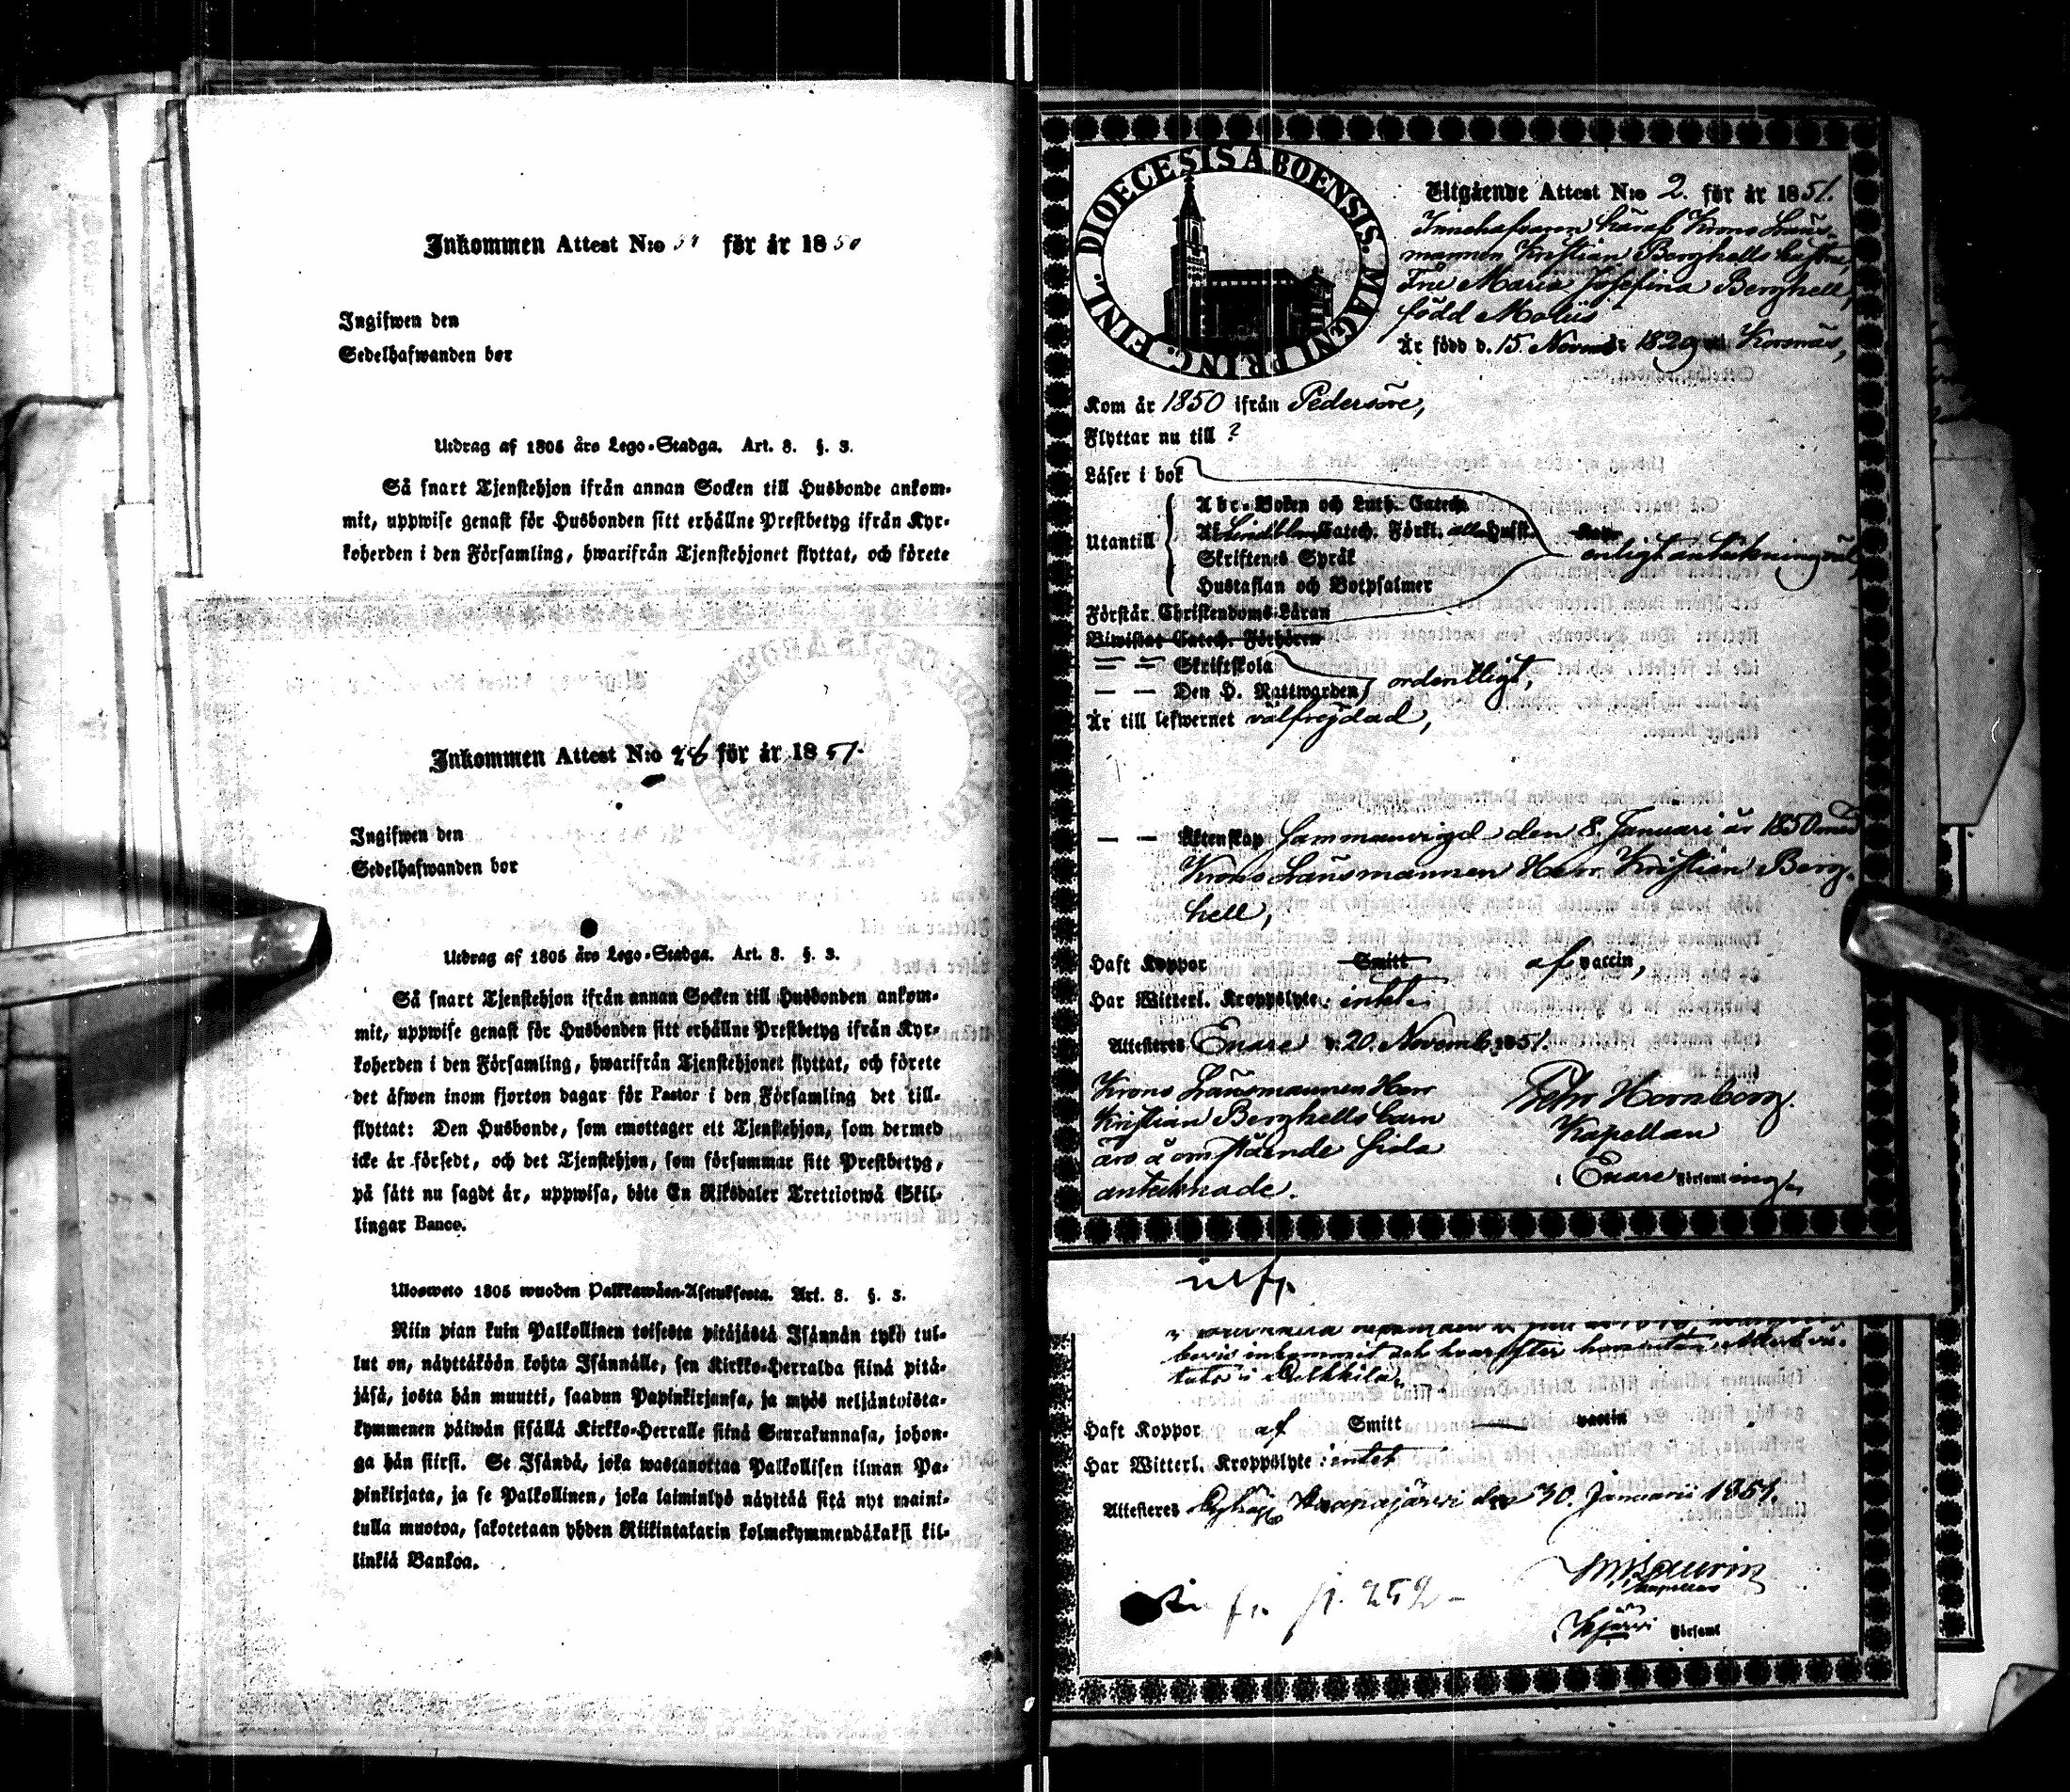 Inkommen Attest N:o 51 för år 1850
Ingifwen den
Sedelhafwanden bor
Utdrag af 1805 års Lego-Stadga. Art. 8. §. 3.
Så snart Tjenstehjon ifrån annan Socken till Husbonde ankom-
mit, uppwise genast för Husbonden sitt erhållne Prestbetyg ifrån Kyr-
koherden i den Församling, hwarifrån Tjenstehjonet flyttat, och förete
Inkommen Attest N:o 26 för år 1851.
Ingifwen den
Sedelhafwanden bor
Utdrag af 1805 års Lego-Stadga. Art. 8. §. 3.
Så snart Tjenstehjon ifrån annan Socken till Husbonden ankom-
mit, uppwise genast för Husbonden sitt erhållne Prestbetyg ifrån Kyr-
koherden i den Församling, hwarifrån Tjenstehjonet flyttat, och förete
det äfwen inom fjorton dagar för Pastor i den Församling det till-
flyttat: Den Husbonde, som emottager ett Tjenstehjon, som dermed
icke är försedt, och det Tjenstehjon, som försummar sitt Prestbetyg,
på sätt nu sagdt är, uppwisa, böte En Riksdaler Trettiotwå Skil-
lingar Banco.
Ulosweto 1805 wuoden Palkkawäen-Asetuksesta. Art. 8. §. 3.
Niin pian kuin Palkollinen toisesta pitäjästä Isännän tykö tul-
lut on, näyttäköön kohta Isännälle, sen Kirkko-Herralda siinä pitä-
jäsä, josta hän muutti, saadun Papinkirjansa, ja myös neljäntoista-
kymmenen päiwän sisällä Kirkko-Herralle siinä Seurakunnasa, johon-
ga hän siirsi. Se Isändä, joka wastanottaa Palkollisen ilman Pa-
pinkirjata, ja se Palkollinen, joka laiminlyö näyttää sitä nyt maini-
tulla muotoa, sakotetaan yhden Riikintalarin kolmekymmendäkaksi kil-
linkiä Bankoa.
DIOECESIS ABOENSIS. MAGNI PRINC. FINL.
Utgående Attest N:o 2. för år 1851.
Innehafvaren häraf Krono Läns-
mannen Kristian Berghells hustru,
Fru Maria Josefina Berghell,
född Moliis
Är född d. 15 Novemb: 1829 Korsnäs,
Kom år 1850 ifrån Pedersöre,
Flyttar nu till ?
Läser i bok
Utantill
Abc-Boken och Luth. Catech.
Af Lindblms Catech. Förkl. alla Hufst.
Skriftenes Språk
enligt anteckning väl,
Hustaflan och Botpsalmer
Förstår Christendoms-Läran
Biwistat Catech. Förhören
— — Skriftskola
— — Den H. Nattwarden ordentligt,
Är till lefwernet välfrejdad,
— — Äktenskap sammanvigd den 8. Januari år 1850 med
Krono Länsmannen Herr Kristian Berg-
hell,
Haft Koppor Smitt af vaccin,
Har Witterl. Kroppslyte: intet.
Attesteres Enare d. 20. Novemb. 1851.
Krono Länsmannen Herr
Kristian Berghells barn
äro å omstående sida
antecknade.
Petr Hornborg.
Kapellan
i Enare Församling.
Haft Koppor af Smitt vaccin
Har Witterl. Kroppslyte: intet
Attesteres Haapajärvi den 30. Januarii 1851.
Kapellan
Kjärvi Församl
fr. p. 252-